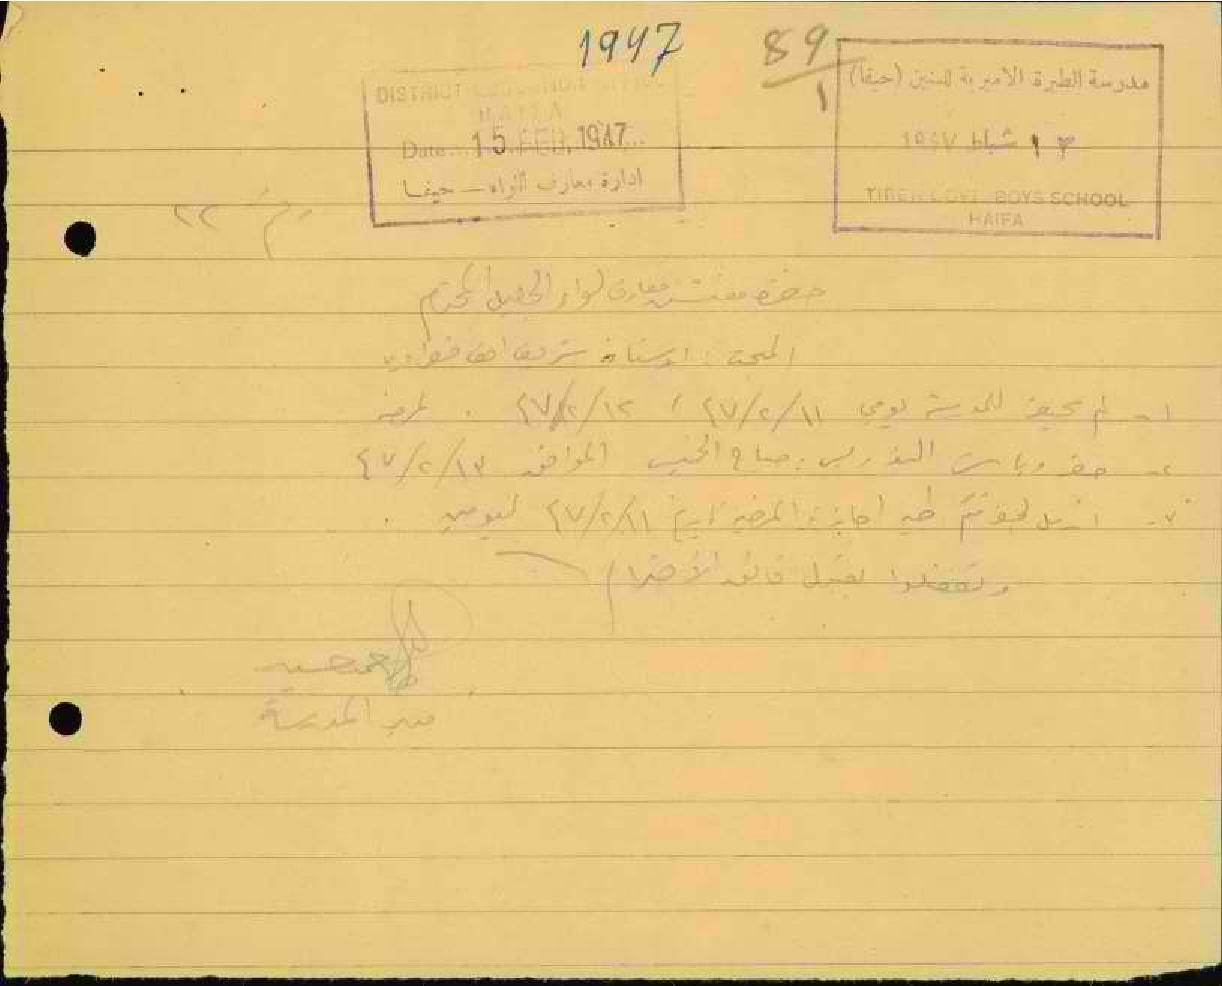 1947
89
1
DISTRICT EDUCATION OFFICE
HAIFA
Date... 15 FEB. 1947...
ادارة معارف اللواء — حيفا
مدرسة الطيرة الاميرية للبنين (حيفا)
١٣ شباط ١٩٤٧
TIREH GOVT. BOYS SCHOOL
HAIFA
٢٢
حضرة مفتش معارف لواء الجليل المحترم
المبحث : الاستاذ شريف
١ـ لم يحضر للمدرسة يومي ١١/٢/٤٧ ، ١٢/٢/٤٧ . لمرضه
٢ـ التدريس صباح الخميس الموافق ١٣/٢/٤٧
٣ـ ارسل لحضرتكم طيه اجازته المرضية تاريخ ١١/٢/٤٧ ليومين .
وتفضلوا بقبول فائق الاحترام
مدير المدرسة